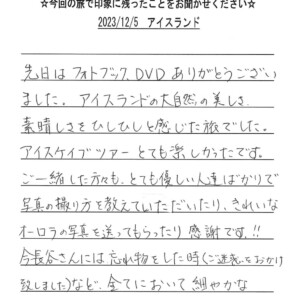 ☆今回の旅で印象に残ったことをお聞かせください☆
2023/12/5　アイスランド
先日はフォトブック、DVD ありがとうござい
ました。アイスランドの大自然の美しさ
素晴しさをひしひしと感じた旅でした。
アイスケイブツアー とても楽しかったです。
ご一緒した方々も、とても優しい人達ばかりで
写真の撮り方を教えていただいたり、きれいな
オーロラの写真を送ってもらったり 感謝です。!!
今長谷さんには忘れ物をした時(ご迷惑をおかけ
致しました)など、全てにおいて 細やかな